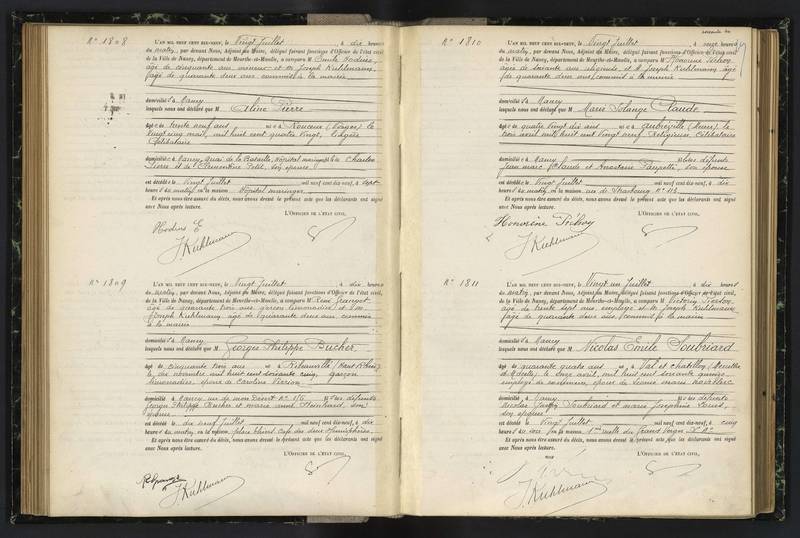 N° 1808
L'AN MIL NEUF CENT DIX-NEUF, le Vingt Juillet, à dix heures
du matin, par devant Nous, Adjoint au Maire, délégué faisant fonctions d'Officier de l'état civil
de la Ville de Nancy, département de Meurthe-et-Moselle, a comparu M Emile Hodius,
âgé de cinquante ans et M Joseph Kuhlmann,
âgé de quarante deux ans commis à la mairie
domicilié s à Nancy
lesquels nous ont déclaré que M Céline Pierre
âgé e de trente neuf ans né e à (Vosges) le
vingt cinq mai, mil huit cent quatre vingt,
Célibataire
domicilié e à Nancy, Quai de la Bataille, Hôpital fille de Charles
Pierre et de Clémentine Petit, son épouse
est décédé e le Vingt Juillet mil neuf cent dix-neuf, à sept
heures du matin en la maison Hôpital
Et après nous être assuré du décès, nous avons dressé le présent acte que les déclarants ont signé
avec Nous après lecture.
L'OFFICIER DE L'ÉTAT CIVIL,
Hodius E
J. Kuhlmann
N° 1809
L'AN MIL NEUF CENT DIX-NEUF, le Vingt Juillet, à dix heures
du matin, par devant Nous, Adjoint au Maire, délégué faisant fonctions d'Officier de l'état civil
de la Ville de Nancy, département de Meurthe-et-Moselle, a comparu M René
âgé de quarante trois ans garçon limonadier et M
Joseph Kuhlmann âgé de quarante deux ans commis
à la mairie
domicilié s à Nancy
lesquels nous ont déclaré que M Georges Philippe Bucher
âgé de cinquante trois ans né à Ribeauvillé (Haut Rhin)
le dix novembre mil huit cent soixante cinq, garçon
limonadier, époux de Caroline
domicilié à Nancy rue de mon Désert N° fils de défunts
Georges Philippe Bucher et Marie Anne son
épouse
est décédé le dix neuf Juillet mil neuf cent dix-neuf, à dix
heures du matin en la maison place Thiers Café des deux Hémisphères
Et après nous être assuré du décès, nous avons dressé le présent acte que les déclarants ont signé
avec Nous après lecture.
L'OFFICIER DE L'ÉTAT CIVIL,
J. Kuhlmann
N° 1810
L'AN MIL NEUF CENT DIX-NEUF, le Vingt Juillet, à onze heures
du matin, par devant Nous, Adjoint au Maire, délégué faisant fonctions d'Officier de l'état civil
de la Ville de Nancy, département de Meurthe-et-Moselle, a comparu M Honorine
âgée de soixante ans et M Joseph Kuhlmann âgé
de quarante deux ans, commis à la mairie
domicilié s à Nancy
lesquels nous ont déclaré que M Marie Solange Claude
âgé e de quatre vingt dix ans né e à Aubréville (Meuse), le
trois avril mil huit cent vingt neuf Religieuse, Célibataire
domicilié e à Nancy fille de défunts
Jean Marc Claude et Anastasie son épouse
est décédé e le Vingt Juillet mil neuf cent dix-neuf, à dix
heures du matin en la maison rue de Strasbourg N° 113
Et après nous être assuré du décès, nous avons dressé le présent acte que les déclarants ont signé
avec Nous après lecture.
L'OFFICIER DE L'ÉTAT CIVIL,
Honorine
J. Kuhlmann
N° 1811
L'AN MIL NEUF CENT DIX-NEUF, le Vingt un Juillet, à dix heures
du matin, par devant Nous, Adjoint au Maire, délégué faisant fonctions d'Officier de l'état civil,
de la Ville de Nancy, département de Meurthe-et-Moselle, a comparu M Victor
âgé de trente sept ans, employé et M Joseph Kuhlmann
âgé de quarante deux ans, commis à la mairie
domicilié s à Nancy
lesquels nous ont déclaré que M Nicolas Emile Soubriard
âgé de quarante quatre ans né à Val et Chatillon (Meurthe
et Moselle) le onze avril, mil huit cent soixante quinze
employé de époux de Jeanne Marie
domicilié à Nancy fils de défunts
Nicolas Soubriard et Marie Joséphine Louis,
son épouse
est décédé le Vingt Juillet mil neuf cent dix-neuf, à cinq
heures du soir en la maison ruelle du Grand Verger
Et après nous être assuré du décès, nous avons dressé le présent acte que les déclarants ont signé
avec Nous après lecture.
L'OFFICIER DE L'ÉTAT CIVIL,
J. Kuhlmann